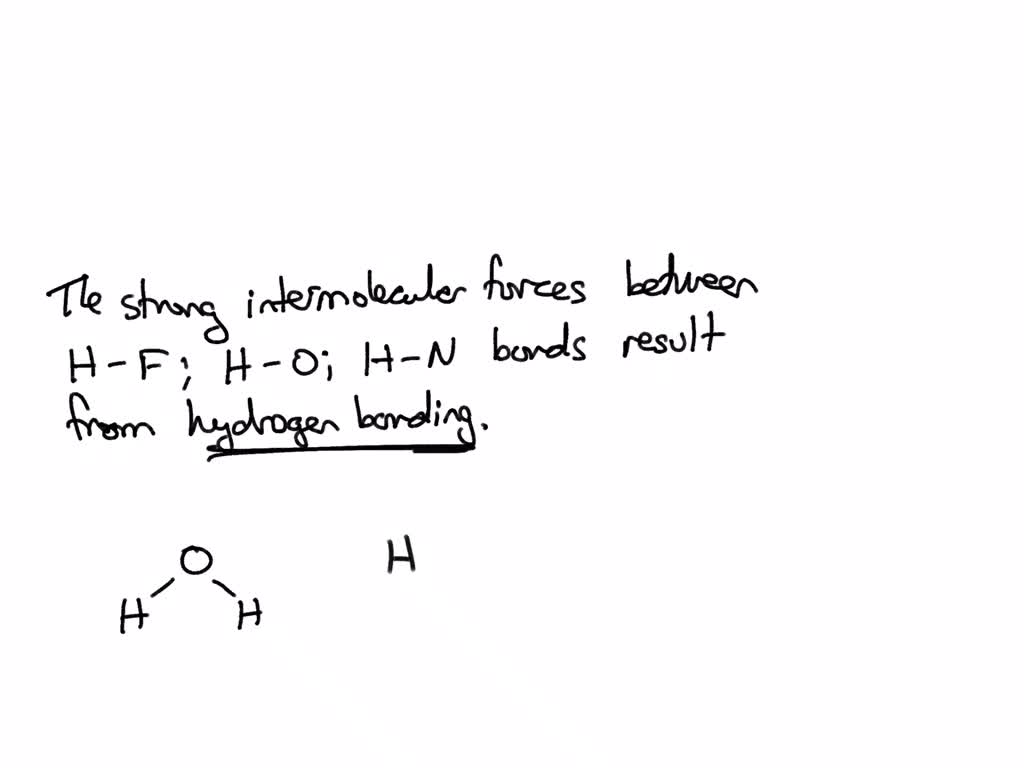 The strong intermolecular forces between
H-F; H-O; H-N bonds result
from hydrogen bonding.
O H
H H